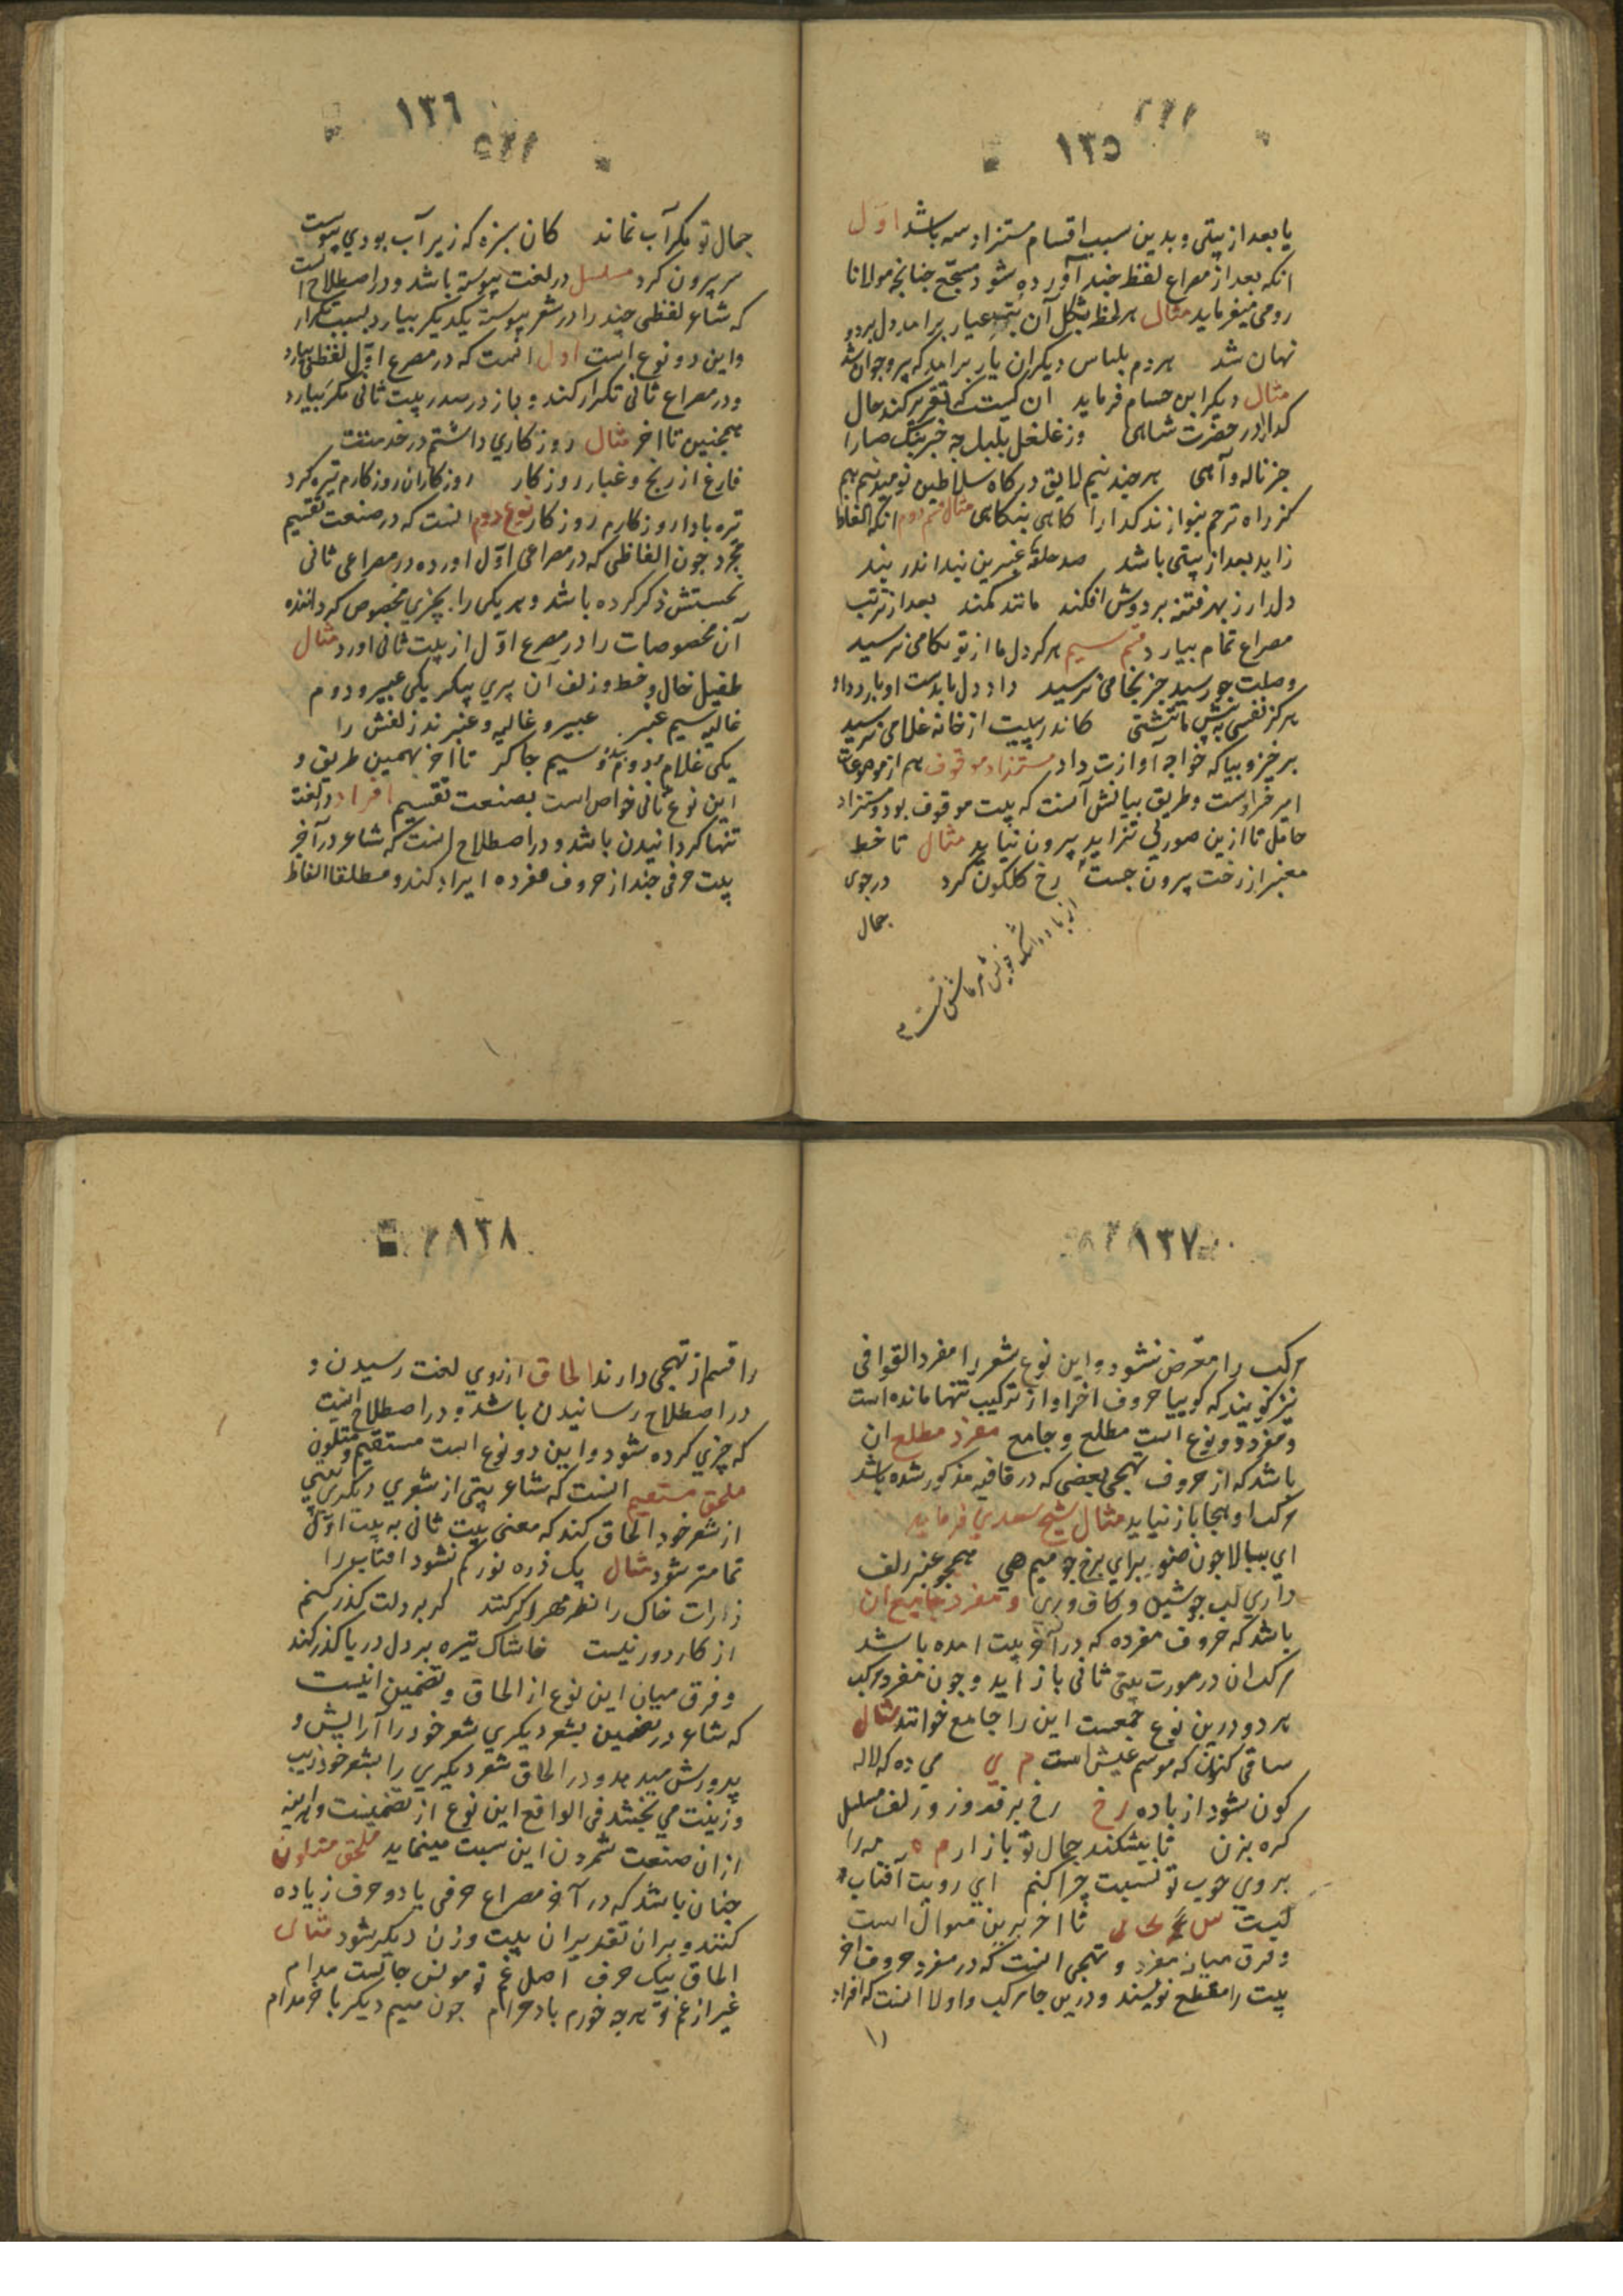 ١٣٥
يا بعد از بيتی و بدين سبب اقسام مستزاد سه باشد اوّل
انکه بعد از مصراع لفظ چند آورده شود مسجّع چنانچه مولانا
رومی ميفرمايد مثال هر لحظ بشکل آن بت عيار برامد دل برد و
نهان شد هر دم بلباس ديکران يار برامد که پير و جوان شد
مثال ديکر ابن حسام فرمايد ان کيست که تقرير کند حال
کدا را در حضرت شاهی وز غلغل بلبل چه خبر پيک صبا را
جز ناله و آهی هر چند نيم لايق درکاه سلاطين نوميد نيم هم
کز راه ترحم بنوازند کدا را کاهی بنکاهی مثال قسم دوم انکه الفاظ
زايد بعد از بيتی باشد صد حلقه عنبرين نيدا ندر بند
دلدار ز بهر فتنه بر دوش افکند مانند کمند بعد از ترتب
مصراع تمام بيارد قسم سيم هرکز دل ما از تو بکامی نرسيد
وصلت چو رسيد جز بخامی نرسيد داد دل ما بدست او بايد داد
هرکز نفسی به پيش ما ننشتی کاندر پييت از خانه غلامی نرسيد
برخيز و بيا که خواجه آوازت داد مستزاد موقوف هم از موضوعات
امير خسرو است و طريق بيانش آنست که بيت موقوف بود و مستزاد
حامل تا ازين صورتی نزايد بيرون نيايد مثال تا خط
معنبر از رخت بيرون جست رخ کلکون کرد در جوی
جمال
١٣٦
جمال تو مکر آب نماند کان سبزه که زير آب بودی پيوست
سر بيرون کرد مسلسل در لغت پيوسته باشد و در اصطلاح انست
که شاعر لفظی چند را در شعر پيوسته يکديکر بيارد بسبب تکرار
و اين دو نوع است اول انست که در مصرع اوّل لفظی بيارد
و در مصراع ثانی تکرار کنند و باز در صدر بيت ثانی مکرر بيارد
همچنين تا اخر مثال روزکاری داشتم در خدمتت
فارغ از رنج و غبار روزکار روزکاران روزکارم تيره کرد
تيره بادا روزکارم روزکار نوع دوم انست که در صنعت تقسيم
مجرد چون الفاظی که در مصراعی اوّل اورده در مصراعی ثانی
نخستش ذکر کرده باشد و هر يکی را بچيزی مخصوص کردانند
آن مخصوصات را در مصرع اوّل از بيت ثانی اورد مثال
طفيل خال و خط و زلف آن پري پيکر يکی عبير و دوم
غاليه سيم عنبر عبير و غاليه و عنبرند زلفش را
يکی غلام دوم بنده و سيم چاکر تا اخر بهمين طريق و
اين نوع ثانی خواص است بصنعت تقسيم افراد در لغت
تنها کردانيدن باشد و در اصطلاح انست که شاعر در آخر
بيت حرفی چند از حروف مفرده ايراد کند و مطلقا الفاظ
١٣٧
مرکب را متعرض نشود و اين نوع شعر را مفرد القوافی
نيز کويند که کوييا حروف اخر او از ترکيب تنها مانده است
و مفرد دو نوع است مطلع و جامع مفرد مطلع ان
باشد که از حروف تهجی بعضی که در قافيه مذکور شده باشد
مرکب او بجا باز نيايد مثال شيخ سعدي فرمايد
اي ببالا چون صنوبر براي برخ چو ميم هی همچو عنبر زلف
داري لب چو شين و کاف و ري و مفرد جامع ان
باشد که حروف مفرده که در آخر بيت امده باشد
مرکب ان در صورت بيتی ثانی باز آيد و چون مفرد و مرکب
هر دو درين نوع جمعست اين را جامع خوانند مثال
ساقی کنون که موسم عيش است م ي می ده که لاله
کون شود از باده رخ رخ بر فروز و زلف مسلسل
کره بزن تا بشکند جمال تو بازار م ه مه را
بروی خوب تو نسبت چرا کنم اي رويت آفتاب
تا اخر برين منوال است
و فرق ميان مفرد و تهجی انست که در مفرد حروف اخر
بيت را مقطع نويسند و درين جا مرکب و اولا انست که افراد
١٣٨
را قسم از تهجی دارند الحاق از روي لغت رسيدن و
در اصطلاح رسانيدن باشد و در اصطلاح اينست
که چيزي کرده شود و اين دو نوع است مستقيم و متلون
ملحق مستقيم انست که شاعر بيتی از شعري ديکري ببيتی
از شعر خود الحاق کند که معنی بيت ثانی به بيت اوّل
تمامتر شود مثال يک ذره نور کم نشود افتاب را
ذرات خاک را نظر مهر اکر کند کر بر دلت کذر کنم
از کار دور نيست خاشاک تيره بر دل دريا کذر کند
و فرق ميان اين نوع از الحاق و تضمين انيست
که شاعر در تضمين بشعر ديکري شعر خود را آرايش و
پرورش ميدهد و در الحاق شعر ديکري را بشعر خود زيب
و زينت می بخشد فی الواقع اين نوع از تضمينست و اين
از ان صنعت شمردن اين سبت مينمايد ملحق متلون
چنان باشد که در آخر مصراع حرفی يا دو حرف زياده
کنند و بر ان تقدير ان بيت وزن ديکر شود مثال
الحاق بيک حرف اصل غم تو مونس جانست مدام
غير از غم تو هر چه خورم باد حرام چون ميم ديکر باخر مدام